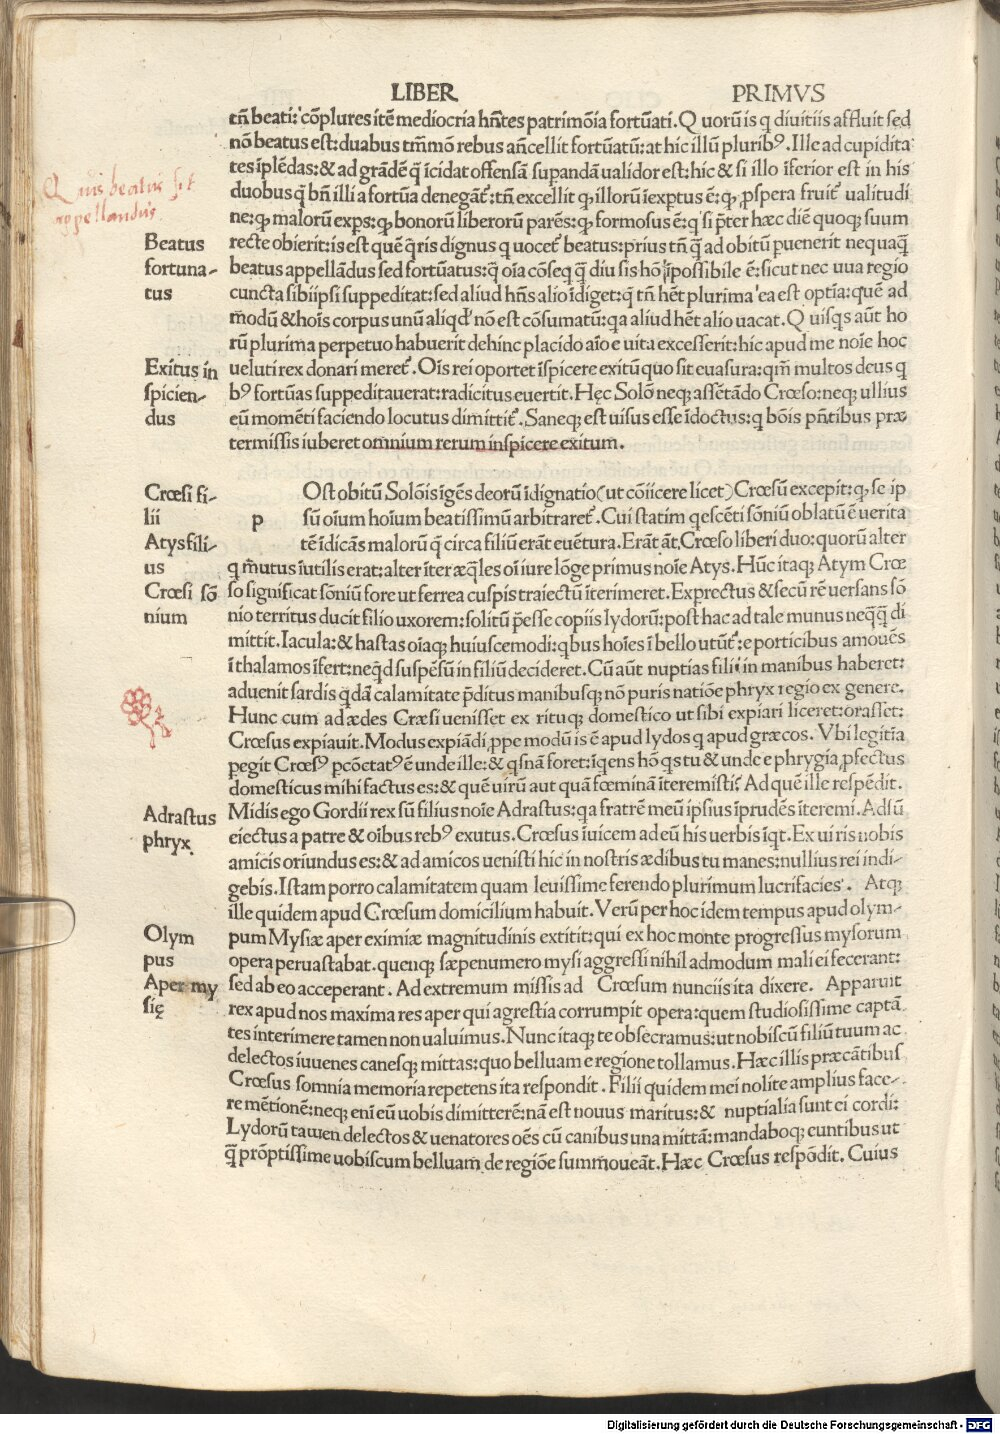 LIBER PRIMVS
tñ beati: cõplures itẽ mediocria hñtes patrimõia fortũati. Q uorũ is q diuitiis affluit sed
nõ beatus est: duabus tm̃mõ rebus añcellit fortũatũ: at hic illũ pluribꝰ. Ille ad cupidita
tes ĩplẽdas: & ad grãdẽ q̃ ĩcidat offensã supandã ualidor est: hic & si illo ĩferior est in his
duobus q̃ bñ illi a fortũa denegãt᷑: tñ excellit ꝙ illorũ ĩexptus ẽ: ꝙ ꝓspera fruit᷑ ualitudi
ne: ꝙ malorũ exps: ꝙ bonorũ liberorũ parẽs: ꝙ formosus ẽ: q si p̃ter hæc diẽ quoqꝫ suum
recte obierit: is est quẽ q̃ris dignus q uocet᷑ beatus: prius tñ q̃ ad obitũ puenerit nequaq̃
beatus appellãdus sed fortũatus: q̃ oĩa cõseq q̃ diu sis hõ ĩpossibile ẽ: sicut nec uua regio
cuncta sibiipsi suppeditat: sed aliud hñs alio ĩdiget: q̃ tñ hẽt plurima ea est optĩa: quẽ ad
modũ & hoĩs corpus unũ aliqd' nõ est cõsumatũ: qa aliud hẽt alio uacat. Q uisqs aũt ho
rũ plurima perpetuo habuerit dehinc placido aĩo e uita excesserit: hic apud me noĩe hoc
ueluti rex donari meret᷑. Oĩs rei oportet ĩspicere exitũ quo sit euasura: qm̃ multos deus q
bꝰ fortũas suppeditauerat: radicitus euertit. Hęc Solõ neqꝫ assẽtãdo Crœso: neqꝫ ullius
eũ momẽti faciendo locutus dimittit᷑. Saneqꝫ est uisus esse ĩdoctus: q bõis pñtibus præ
termissis iuberet omnium rerum inspicere exitum.
Q uis beatus sit
appellandus
Beatus
fortuna-
tus
Exitus in
spicien-
dus
p
Ost obitũ Solõis ĩgẽs deorũ ĩdignatio (ut cõiicere licet) Crœsũ excepit: ꝙ se ip
sũ oĩum hoĩum beatissimũ arbitraret᷑. Cui statim qescẽti sõniũ oblatũ ẽ uerita
tẽ ĩdicãs malorũ q̃ circa filiũ erãt euẽtura. Erãt ãt. Crœso liberi duo: quorũ alter
q m̃utus ĩutilis erat: alter ĩter æq̃les oĩ iure lõge primus noĩe Atys. Hũc itaqꝫ Atym Crœ
so significat sõniũ fore ut ferrea cuspis traiectũ ĩterimeret. Exprectus & secũ rẽ uersans sõ
nio territus ducit filio uxorem: solitũ p̃esse copiis lydorũ: post hac ad tale munus neq̃q̃ di
mittit. Iacula: & hastas oĩaqꝫ huiuscemodi: qbus hoĩes ĩ bello utũt᷑: e porticibus amouẽs
ĩ thalamos ĩfert: neq̃d suspẽsũ in filiũ decideret. Cũ aũt nuptias filii in manibus haberet:
aduenit sardis q̃dã calamitate p̃ditus manibusqꝫ nõ puris natiõe phryx regio ex genere.
Hunc cum ad ædes Cræsi uenisset ex rituqꝫ domestico ut sibi expiari liceret: orasset:
Crœsus expiauit. Modus expiãdi ꝓpe modũ is ẽ apud lydos q apud græcos. Vbi legitĩa
pegit Crœsꝰ pcõctatꝰ ẽ unde ille: & qsnã foret: ĩqens hõ qs tu & unde e phrygia ꝓfectus
domesticus mihi factus es: & quẽ uirũ aut quã fœminã ĩteremisti? Ad quẽ ille respẽdit.
Midis ego Gordii rex sũ filius noĩe Adrastus: qa fratrẽ meũ ipsius ĩprudẽs ĩteremi. Adsũ
eiectus a patre & oĩbus rebꝰ exutus. Crœsus ĩuicem ad eũ his uerbis ĩqt. Ex uiris nobis
amicis oriundus es: & ad amicos uenisti hic in nostris ædibus tu manes: nullius rei indi-
gebis. Istam porro calamitatem quam leuissime ferendo plurimum lucrifacies. Atqꝫ
ille quidem apud Crœsum domicilium habuit. Verũ per hoc idem tempus apud olym-
pum Mysiæ aper eximiæ magnitudinis extitit: qui ex hoc monte progressus mysorum
opera peruastabat. quenqꝫ sæpenumero mysi aggressi nihil admodum mali ei fecerant:
sed ab eo acceperant. Ad extremum missis ad Crœsum nunciis ita dixere. Apparuit
rex apud nos maxima res aper qui agrestia corrumpit opera: quem studiosissime captã
tes interimere tamen non ualuimus. Nunc itaqꝫ te obsecramus: ut nobiscũ filiũ tuum ac
delectos iuuenes canesqꝫ mittas: quo belluam e regione tollamus. Hæc illis præcãtibus
Crœsus somnia memoria repetens ita respondit. Filii quidem mei nolite amplius face-
re mẽtionẽ: neqꝫ enĩ eũ uobis dimitterẽ: nã est nouus maritus: & nuptialia sunt ei cordi:
Lydorũ tamen delectos & uenatores oẽs cũ canibus una mittã: mandaboqꝫ euntibus ut
q̃ prõptissime uobiscum belluam de regiõe summoueãt. Hæc Crœsus respõdit. Cuius
Crœsi fi-
lii
Atys fili-
us
Crœsi sõ
nium
Adrastus
phryx
Olym
pus
Aper my
się
Digitalisierung gefördert durch die Deutsche Forschungsgemeinschaft - DFG